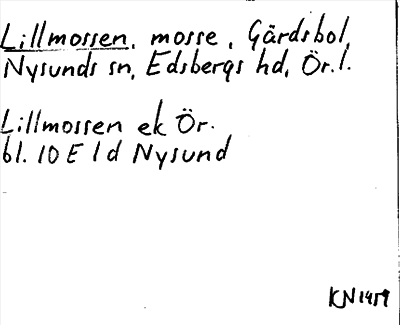 Lillmossen, mosse, Gärdsbol,
Nysunds sn, Edsbergs hd, Ör. l.
Lillmossen ek Ör.
bl. 10 E 1 d Nysund
KN 1459